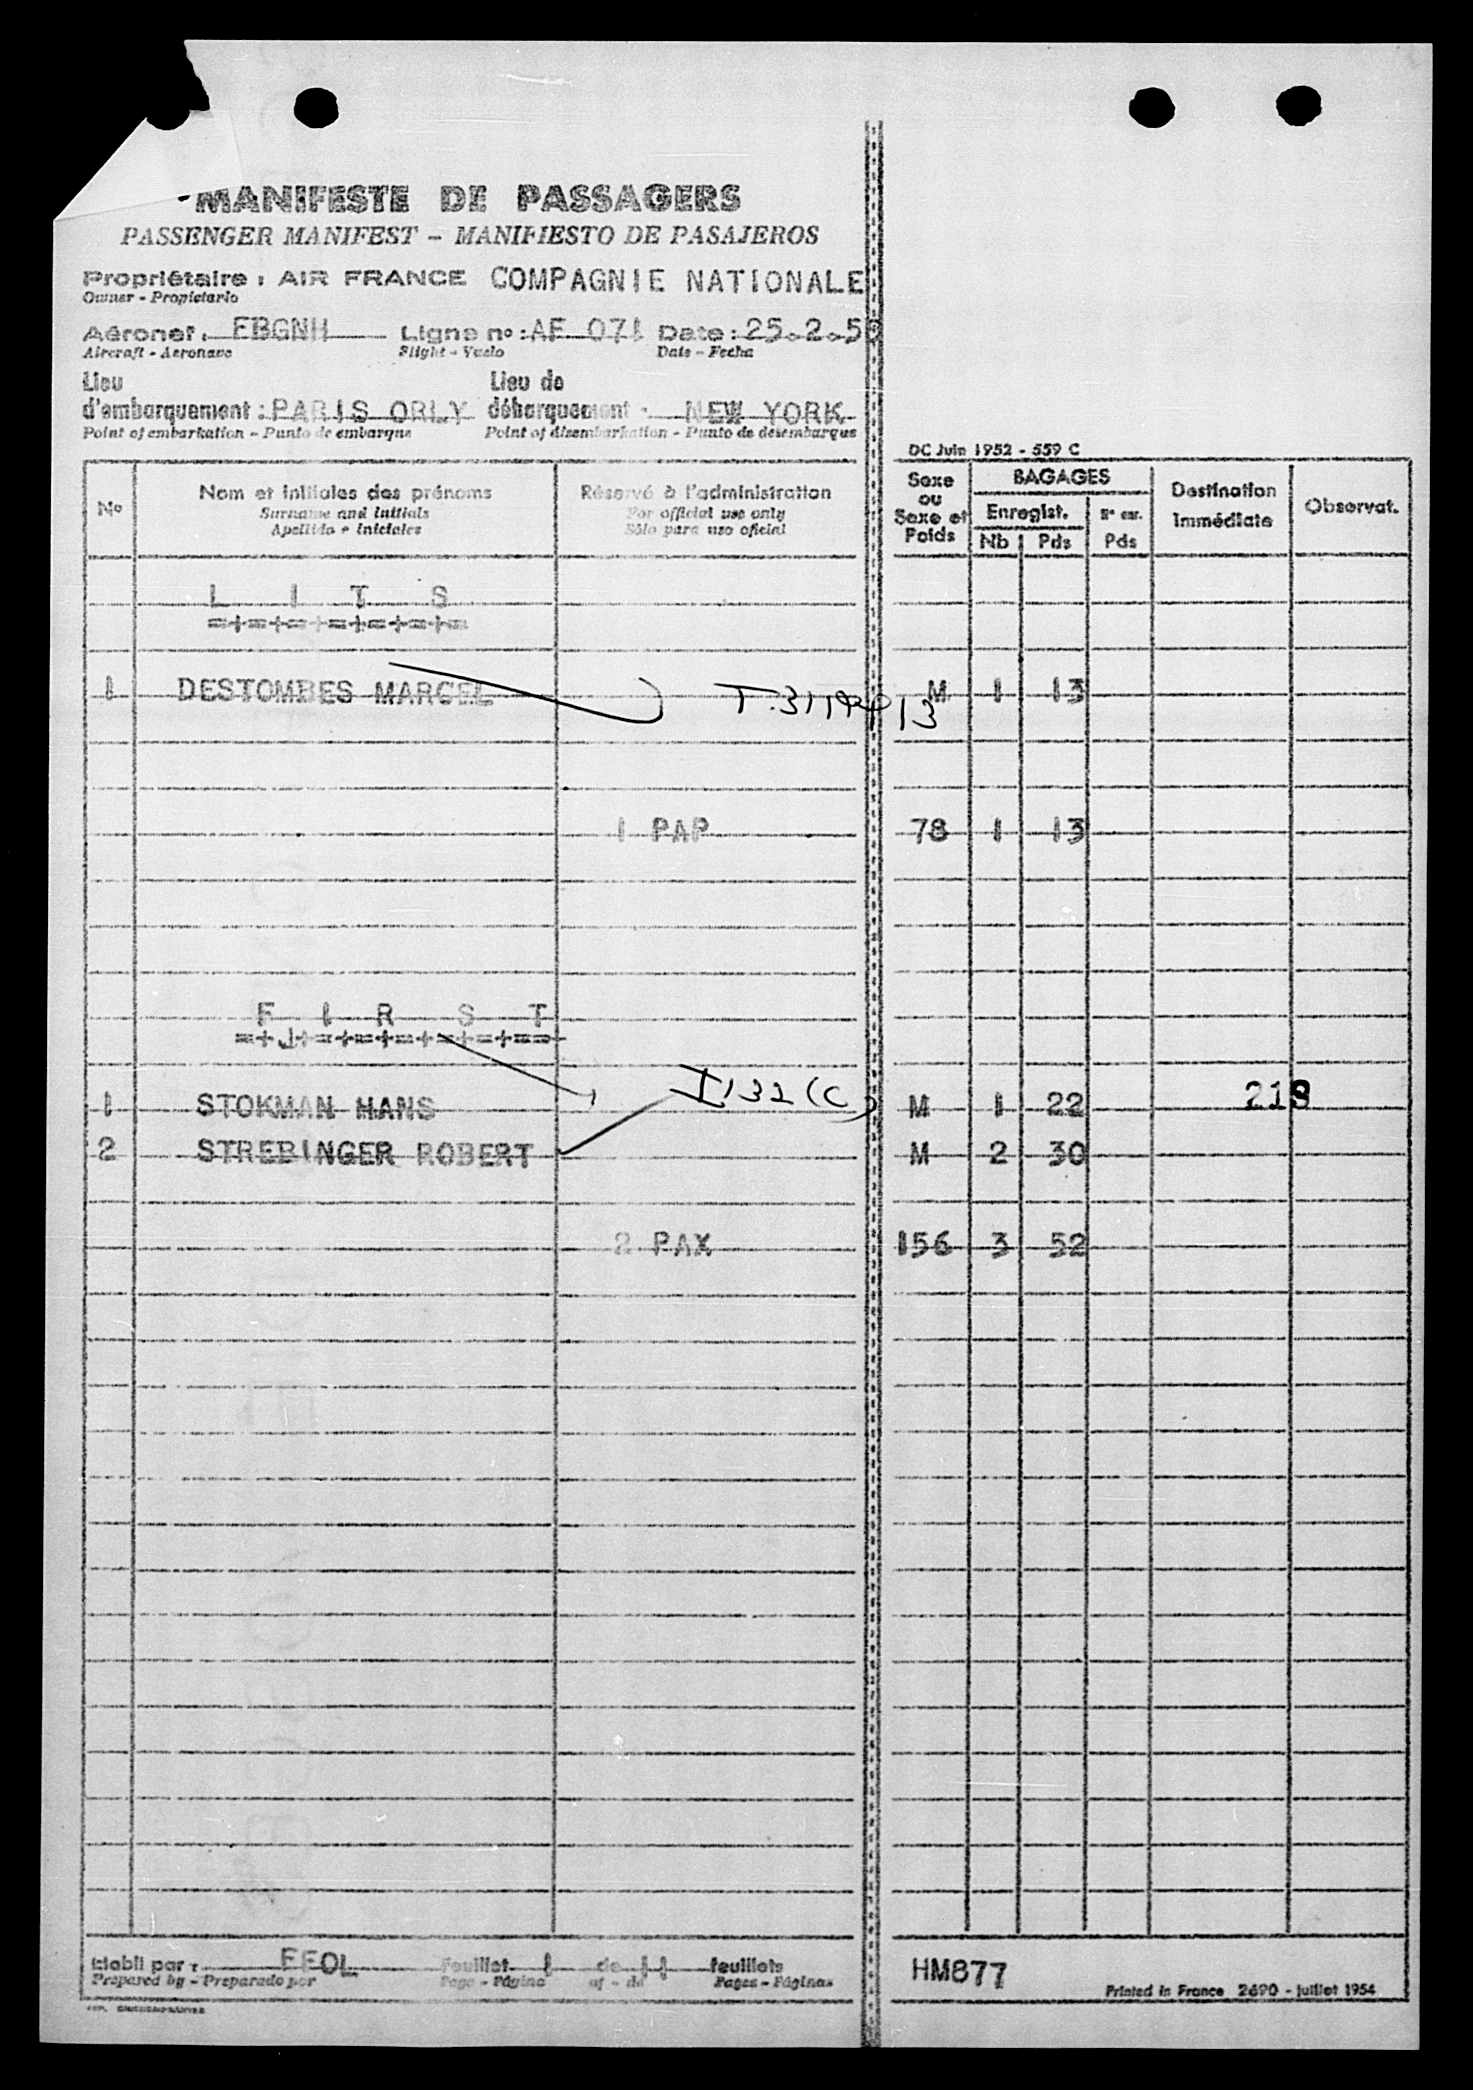 MANIFESTE DE PASSAGERS
PASSENGER MANIFEST - MANIFIESTO DE PASAJEROS
Propriétaire : AIR FRANCE COMPAGNIE NATIONALE
Owner - Propietario
Aéronef : FBGNH Ligne nº : AF 071 Date : 25-2-5
Aircraft - Aeronave Flight - Vuelo Date - Fecha
Lieu d'embarquement : PARIS ORLY Lieu de débarquement : NEW YORK
Point of embarkation - Punto de embarque Point of disembarkation - Punto de desembarque
DC Juin 1952 - 559 C
Nº Nom et initiales des prénoms Réservé à l'administration Sexe ou Sexe et Poids BAGAGES Destination Immédiate Observat.
Surname and initials For official use only Enregist. Nº enr.
Apellido e iniciales Sólo para uso oficial Nb Pds Pds
L I T S
=+=+=+=+=+=+=
1 DESTOMBES MARCEL M 1 13
1 PAP 78 1 13
F I R S T
1 STOKMAN HANS I 132 (C) M 1 22 218
2 STREBINGER ROBERT M 2 30
2 PAX 156 3 52
Etabli par : FFOL Feuillet 1 de 11 feuillets
Prepared by - Preparado por Page - Página of - de Pages - Páginas
HM877
Printed in France 2690 - juillet 1954